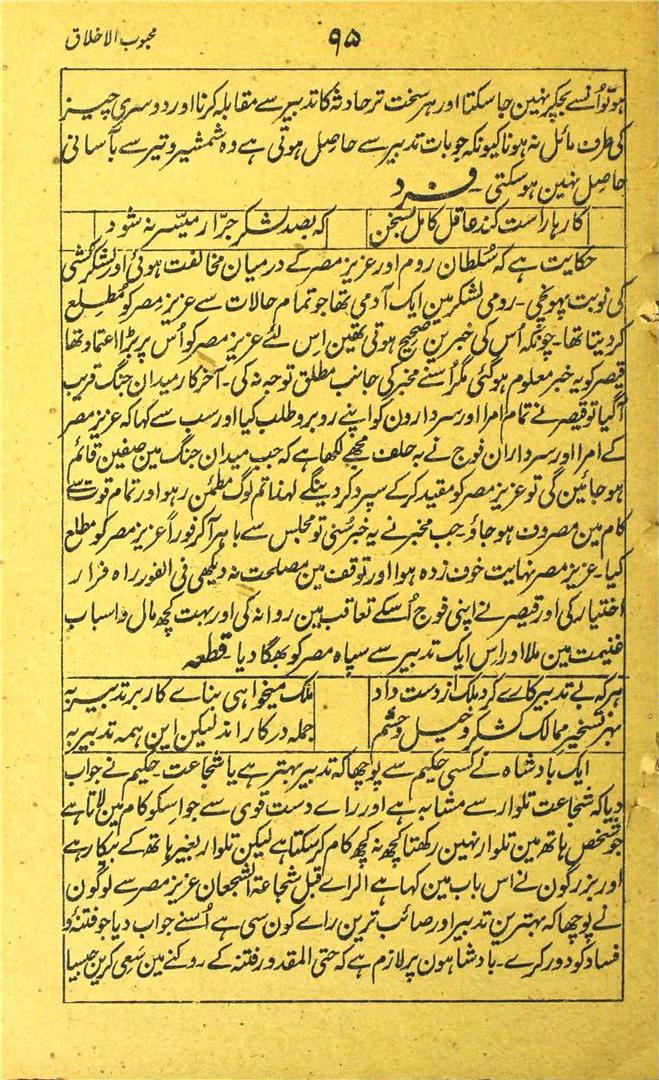 محبوب الاخلاق
۹۵
ہو تو اُنسے بچکر نہین جا سکتا اور ہر سخت تر حادثہ کا تدبیر سے مقابلہ کرنا اور دوسری چیز
کی طرف مائل نہ ہونا کیونکہ جو بات تدبیر سے حاصل ہوتی ہے وہ شمشیر و تیر سے بآسانی
حاصل نہین ہو سکتی۔ فرد
کارہا راست کند عاقل کامل بسخن
کہ بصد لشکر جرّار میسّر نہ شود
حکایت ہے کہ سُلطان روم اور عزیز مصر کے درمیان مخالفت ہوئی اور لشکر کشی
کی نوبت پہونچی۔ رومی لشکر مین ایک آدمی تھا جو تمام حالات سے عزیز مصر کو مُطلع
کر دیتا تھا۔ چونکہ اُس کی خبرین صحیح ہوتی تھین اِس لئے عزیز مصر کو اُس پر بڑا اعتماد تھا
قیصر کو یہ خبر معلوم ہو گئی مگر اُسنے مخبر کی جانب مطلق توجہ نہ کی۔ آخر کار میدان جنگ قریب
آگیا تو قیصر نے تمام امرا اور سردارون کو اپنے روبرو طلب کیا اور سب سے کہا کہ عزیز مصر
کے امرا اور سرداران فوج نے بہ حلف مجھے لکھا ہے کہ جب میدان جنگ مین صفین قائم
ہو جائین گی تو عزیز مصر کو مقید کر کے سپرد کر دینگے لہذا تم لوگ مطمئن رہو اور تمام قوت سے
کام مین مصروف ہو جاؤ۔ جب مخبر نے یہ خبر سُنی تو مجلس سے باہر آکر فوراً عزیز مصر کو مطلع
کیا۔ عزیز مصر نہایت خوف زدہ ہوا اور توقف مین مصلحت نہ دیکھی فی الفور راہ فرار
اختیار کی اور قیصر نے اپنی فوج اُسکے تعاقب مین روانہ کی اور بہت کچھ مال و اسباب
غنیمت مین ملا اور اِس ایک تدبیر سے سپاہ مصر کو بھگا دیا۔ قطعہ
ہر کہ بے تدبیر کارے کرد ملک از دست داد
ملک میخواہی بناے کار بر تدبیر بہ
بہر تسخیر ممالک لشکر و خیل و حشم
جملہ درکار اند لیکن این ہمہ تدبیر بہ
ایک بادشاہ نے کسی حکیم سے پوچھا کہ تدبیر بہتر ہے یا شجاعت۔ حکیم نے جواب
دیا کہ شجاعت تلوار سے مشابہ ہے اور راے دست قوی سے جو اسکو کام مین لاتا ہے
جو شخص ہاتھ مین تلوار نہین رکھتا کچھ نہ کچھ کام کر سکتا ہے لیکن تلوار بغیر ہاتھ کے بیکار ہے
اور بزرگون نے اس باب مین کہا ہے الراے قبل شجاعۃ الشجعان عزیز مصر سے لوگون
نے پوچھا کہ بہترین تدبیر اور صائب ترین راے کون سی ہے اُسنے جواب دیا جو فتنۂ و
فساد کو دور کرے۔ بادشاہون پر لازم ہے کہ حتی المقدور فتنہ کے روکنے مین سعی کرین جیسا